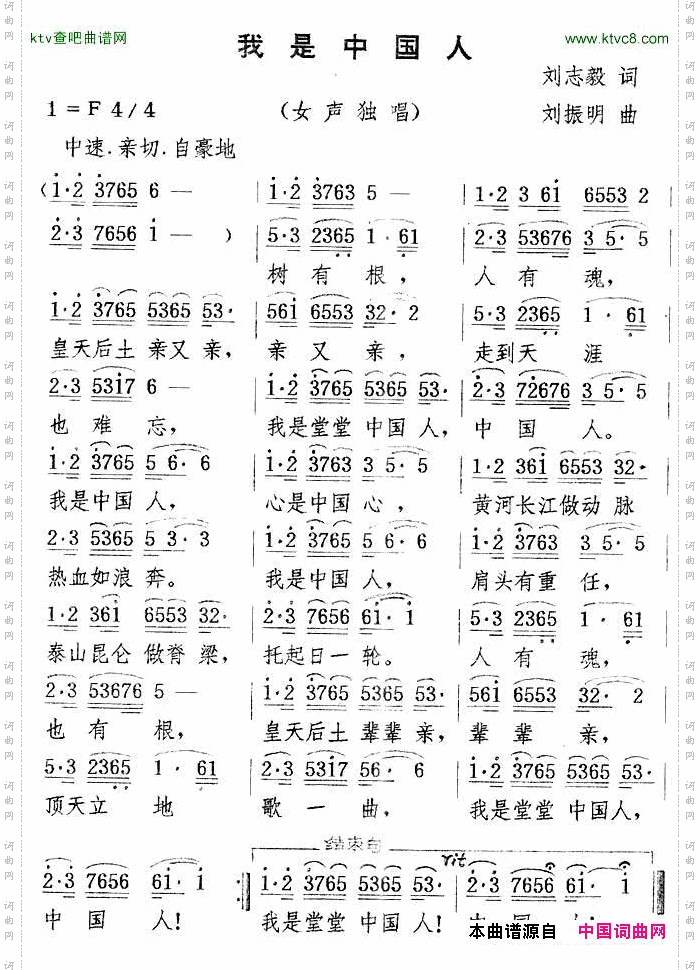 ktv查吧曲谱网
我是中国人
www.ktvc8.com
刘志毅 词
1=F 4/4 (女声独唱) 刘振明 曲
中速.亲切.自豪地
(1·2 3765 6 — | 1·2 3763 5 — | 1·2 3 61 6553 2
2·3 7656 1 — ) | 5·3 2365 1·61 | 2·3 53676 3 5·5
树有根， 人有魂，
1·2 3765 5365 53· | 561 6553 32·2 | 5·3 2365 1·61
皇天后土亲又亲， 亲又亲， 走到天涯
2·3 5317 6 — | 1·2 3765 5365 53· | 2·3 72676 3 5·5
也难忘， 我是堂堂中国人， 中国人。
1·2 3765 5 6·6 | 1·2 3763 3 5·5 | 1·2 361 6553 32·
我是中国人， 心是中国心， 黄河长江做动脉
2·3 5365 5 3·3 | 1·2 3765 5 6·6 | 1·2 3763 3 5·5
热血如浪奔。 我是中国人， 肩头有重任，
1·2 361 6553 32· | 2·3 7656 61·1 | 5·3 2365 1·61
泰山昆仑做脊梁， 托起日一轮。 人有魂，
2·3 53676 5 — | 1·2 3765 5365 53· | 561 6553 32·2
也有根， 皇天后土辈辈亲， 辈辈亲，
5·3 2365 1·61 | 2·3 5317 56·6 | 1·2 3765 5365 53·
顶天立地 歌一曲， 我是堂堂中国人，
结束句 rit
2·3 7656 61·1 :‖ 1·2 3765 5365 53· | 2·3 7656 61·1 ‖
中国人! 我是堂堂中国人!
本曲谱源自 中国词曲网
词曲网